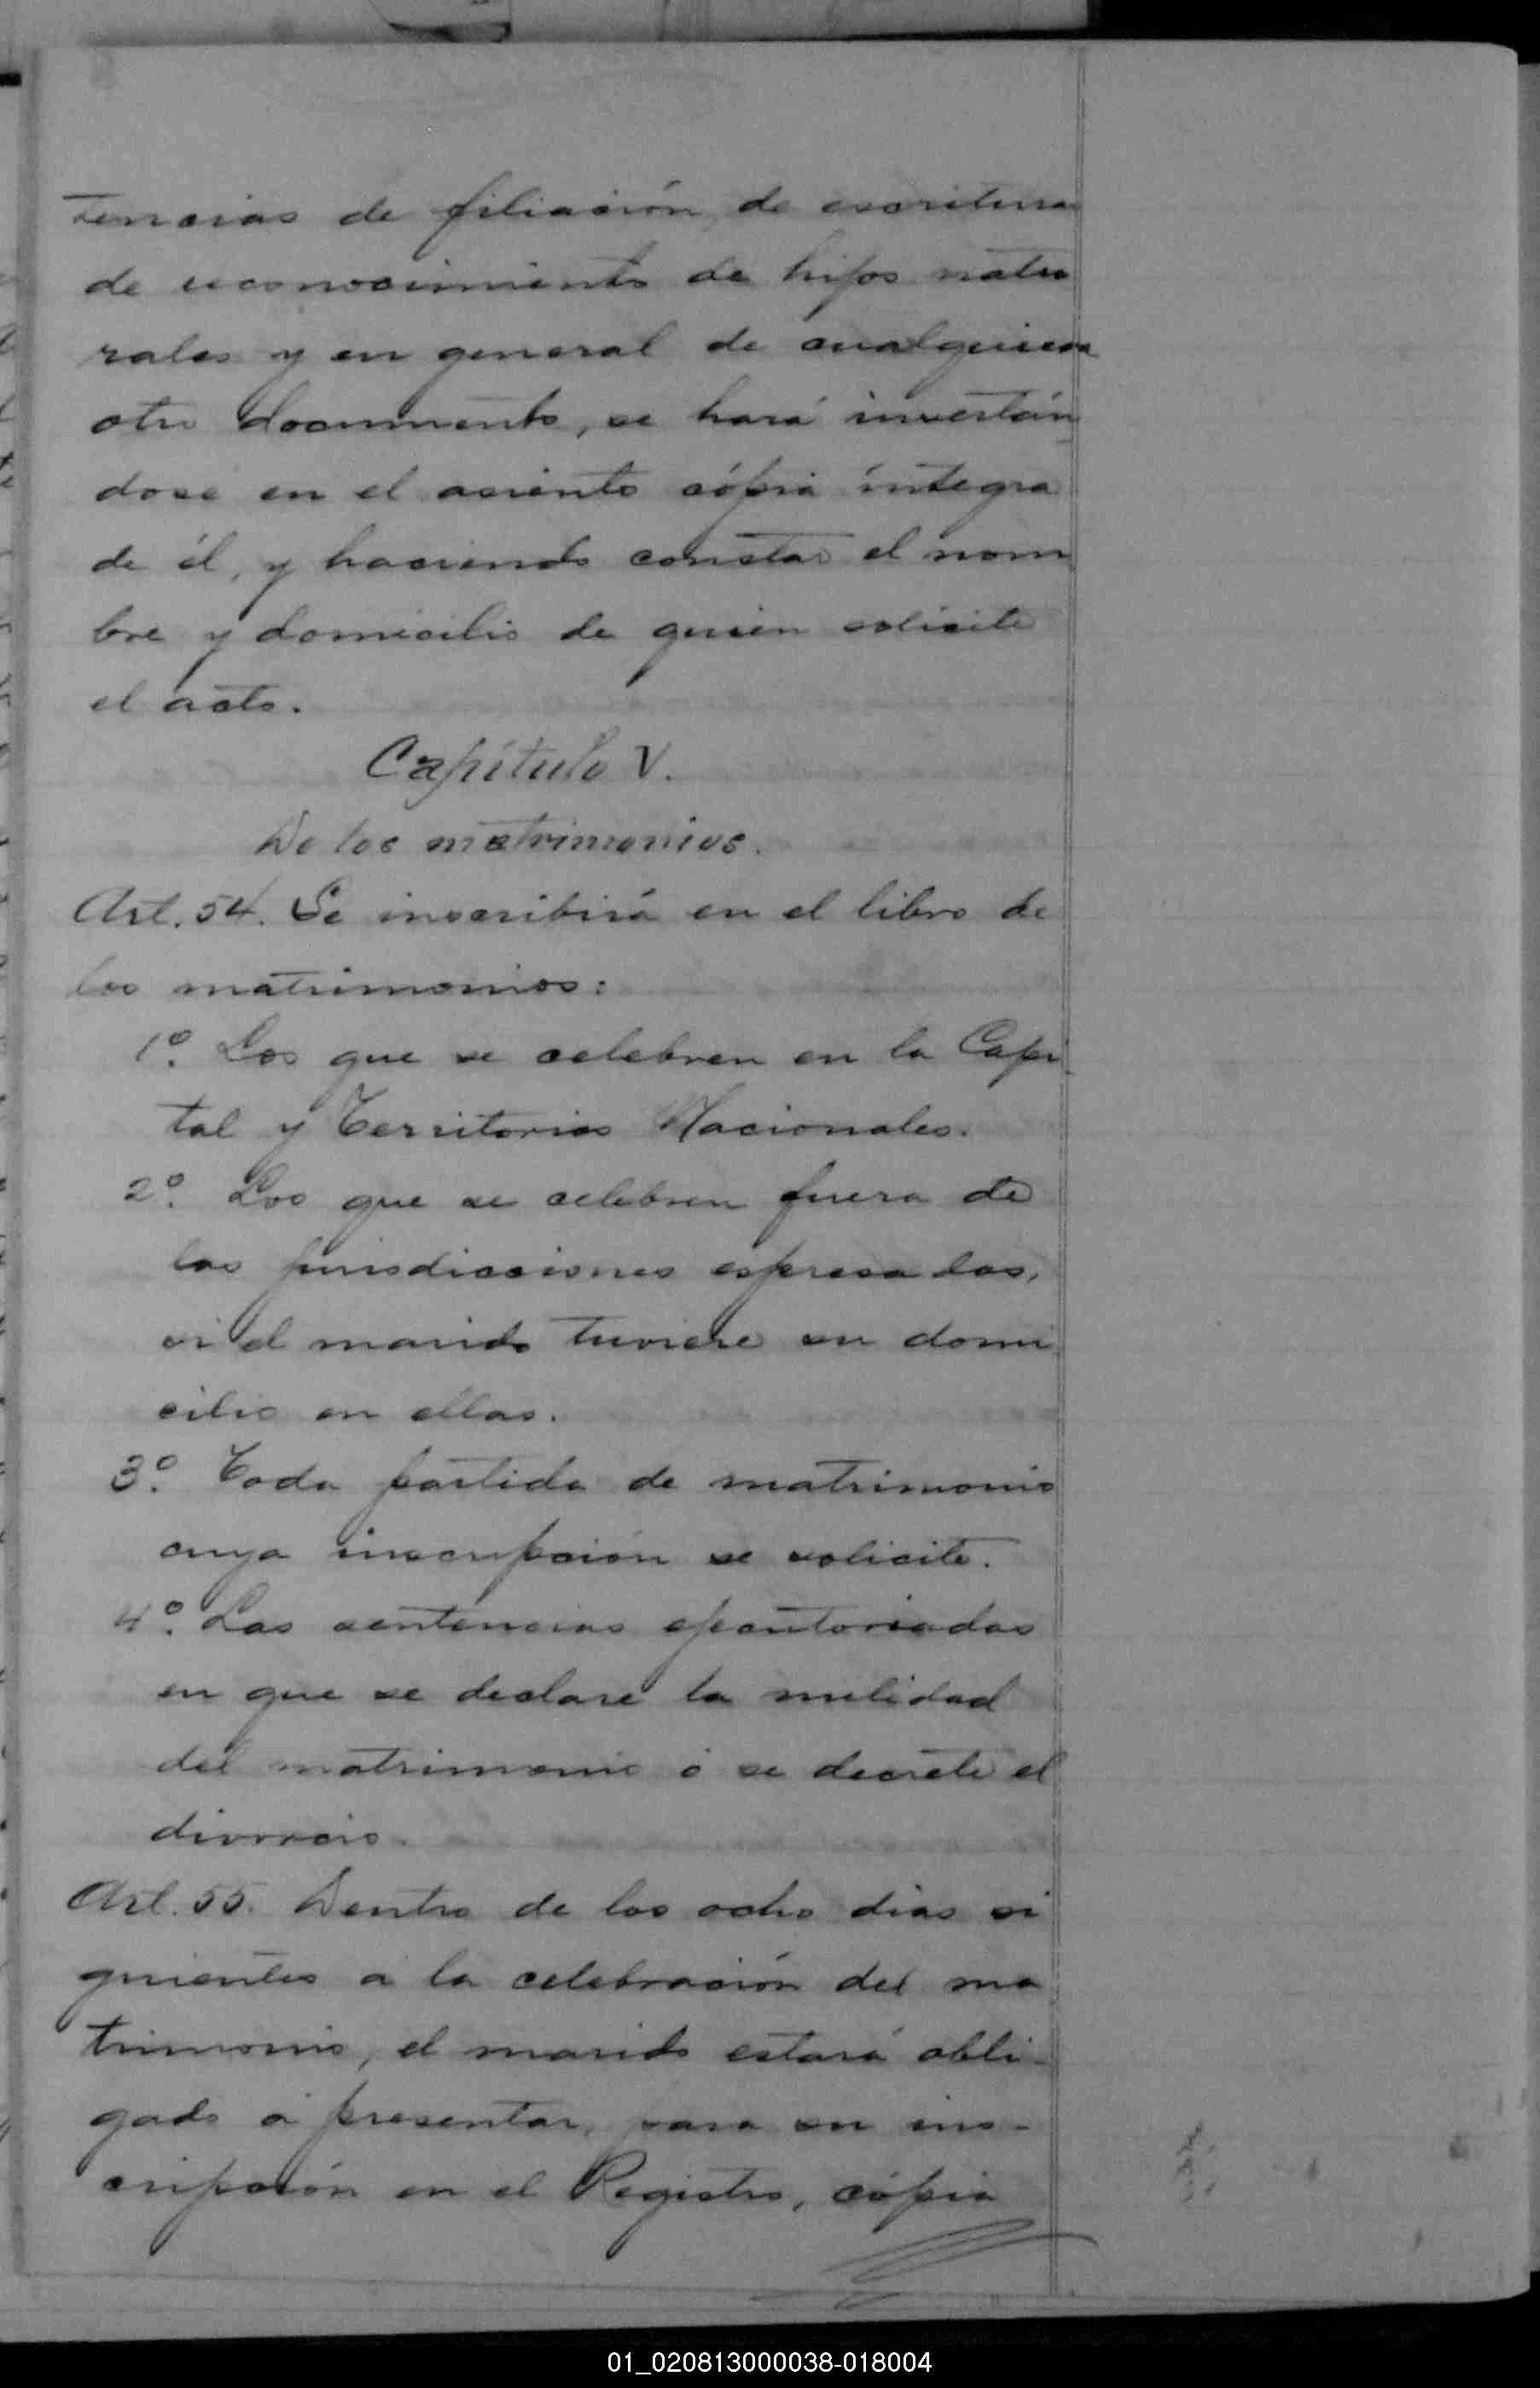 tencias de filiación, de escrituras
de reconocimiento de hijos natu
rales y en general de cualquiera
otro documento, se hará insertán
dose en el asiento cópia íntegra
de él, y haciendo constar el nom
bre y domicilio de quien solicite
el acto.
Capítulo V.
De los matrimonios.
Art. 54. Se inscribirá en el libro de
los matrimonios:
1º. Los que se celebren en la Capi
tal y Territorios Nacionales.
2º. Los que se celebren fuera de
las jurisdicciones espresadas,
si el marido tuviere su domi
cilio en ellas.
3º. Toda partida de matrimonio
cuya inscripción se solicite.
4º. Las sentencias ejecutoriadas
en que se declare la nulidad
del matrimonio ó se decrete el
divorcio.
Art. 55. Dentro de los ocho dias si
guientes a la celebración del ma
trimonio, el marido estará obli-
gado á presentar, para su ins-
cripción en el Registro, cópia
01_020813000038-018004